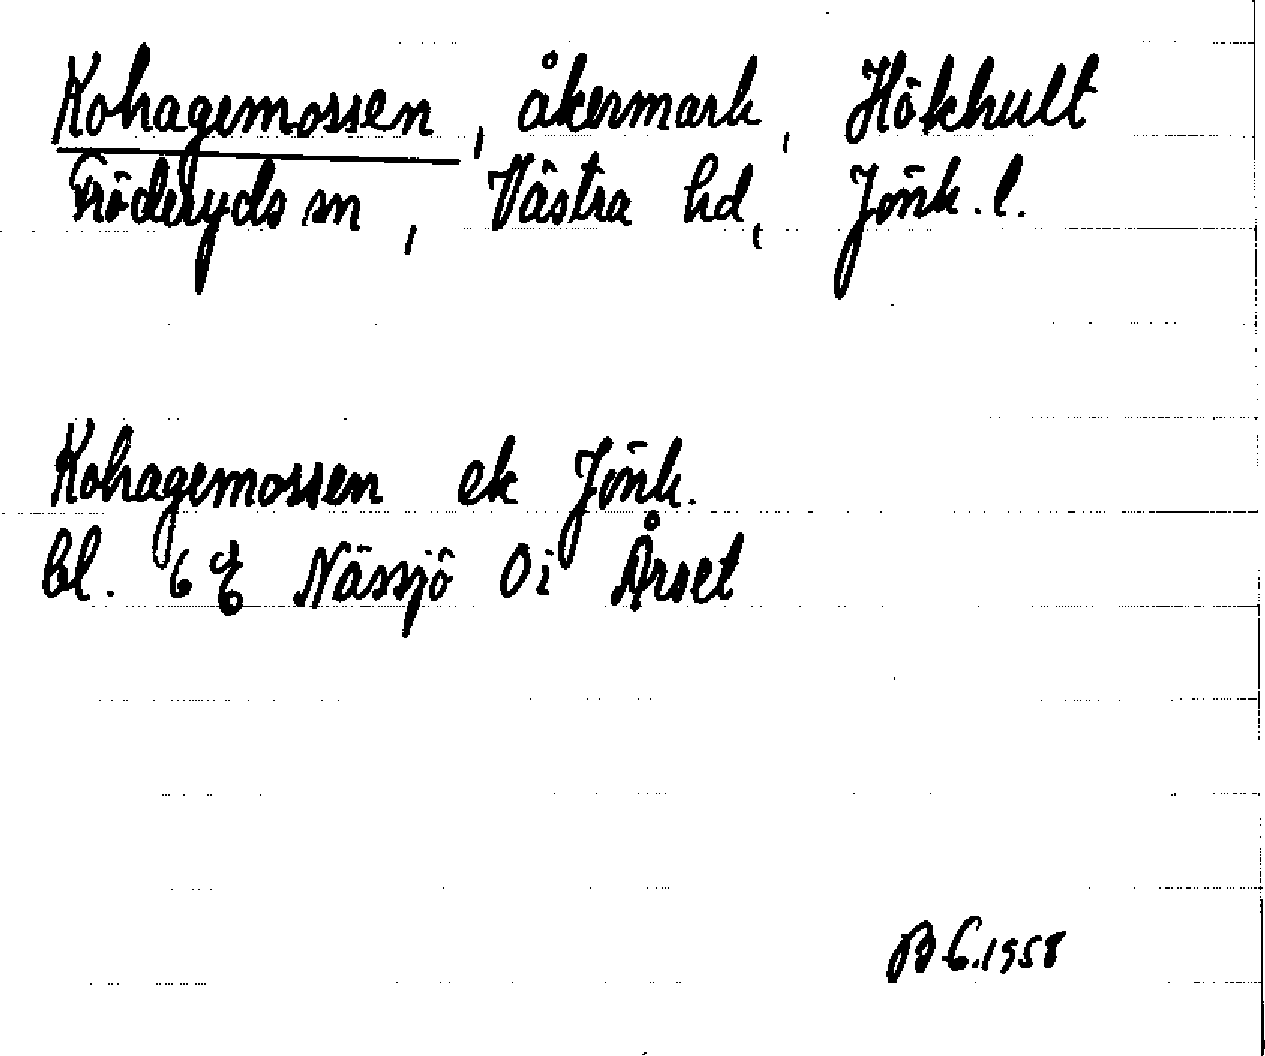 Kohagemossen, åkermark, Hökhult
Fröderyds sn, Västra hd, Jönk. l.
Kohagemossen ek Jönk.
bl. 6 E Nässjö 0i Årset
B G. 1958